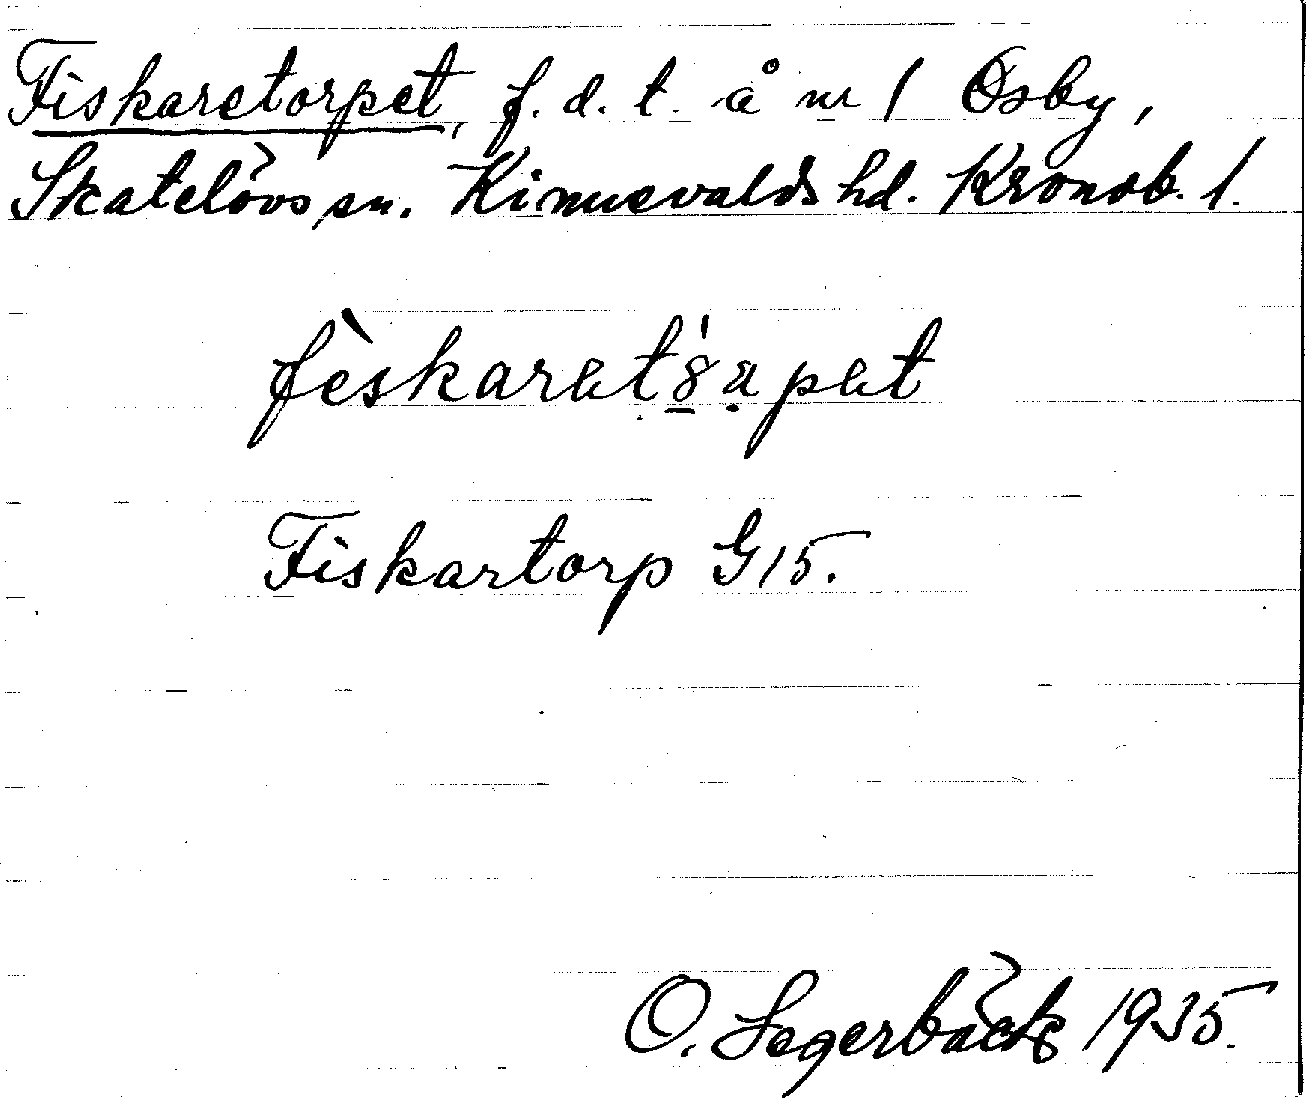 Fiskaretorpet, f. d. t. å nr 1 Osby,
Skatelövs sn. Kinnevalds hd. Kronob. l.
Fiskartorp G15.
O. Segerbäck 1935.